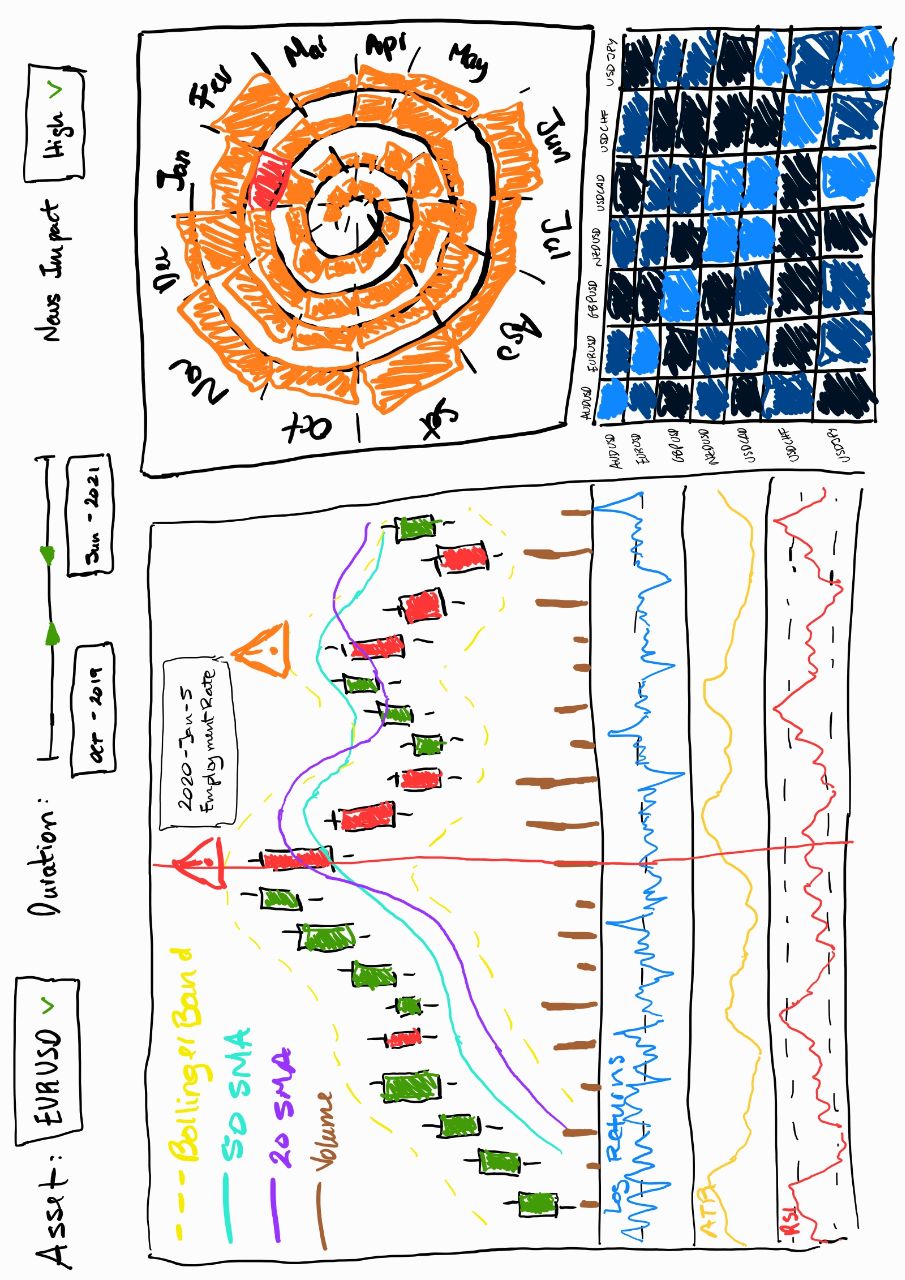 Asset:
EURUSD
Duration:
Oct - 2019
Jun - 2021
News Impact
High
Bollinger Band
50 SMA
20 SMA
Volume
2020-Jan-5
Employment Rate
Log Returns
ATR
RSI
Dec
Jan
Nov
Fev
Oct
Mai
Apr
May
Aug
Jul
Jun
AUDUSD
EURUSD
GBPUSD
NZDUSD
USDCAD
USDCHF
USDJPY
AUDUSD
EURUSD
GBPUSD
NZDUSD
USDCAD
USDCHF
USDJPY